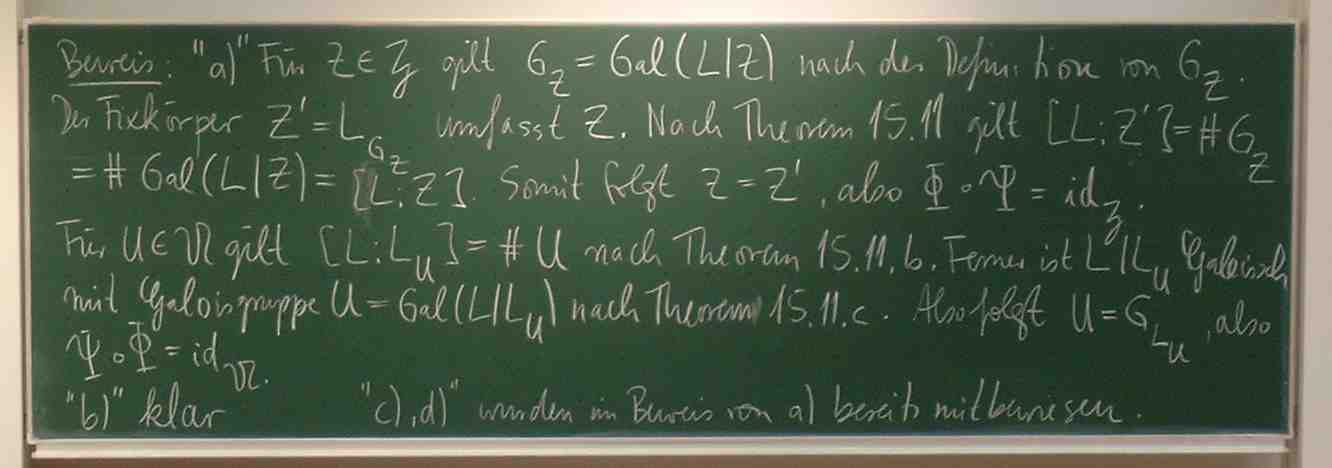 Beweis: "a)" Für Z ∈ 𝔷 gilt G_Z = Gal(L|Z) nach der Definition von G_Z.
Der Fixkörper Z' = L_{G_Z} umfasst Z. Nach Theorem 15.11 gilt [L:Z'] = #G_Z
= # Gal(L|Z) = [L:Z]. Somit folgt Z = Z', also Φ∘Ψ = id_𝔷.
Für U ∈ 𝔘 gilt [L:L_U] = # U nach Theorem 15.11.b. Ferner ist L|L_U Galoissch
mit Galoisgruppe U = Gal(L|L_U) nach Theorem 15.11.c. Also folgt U = G_{L_U}, also
Ψ∘Φ = id_𝔘.
"b)" klar "c), d)" wurden im Beweis von a) bereits mitbewiesen.